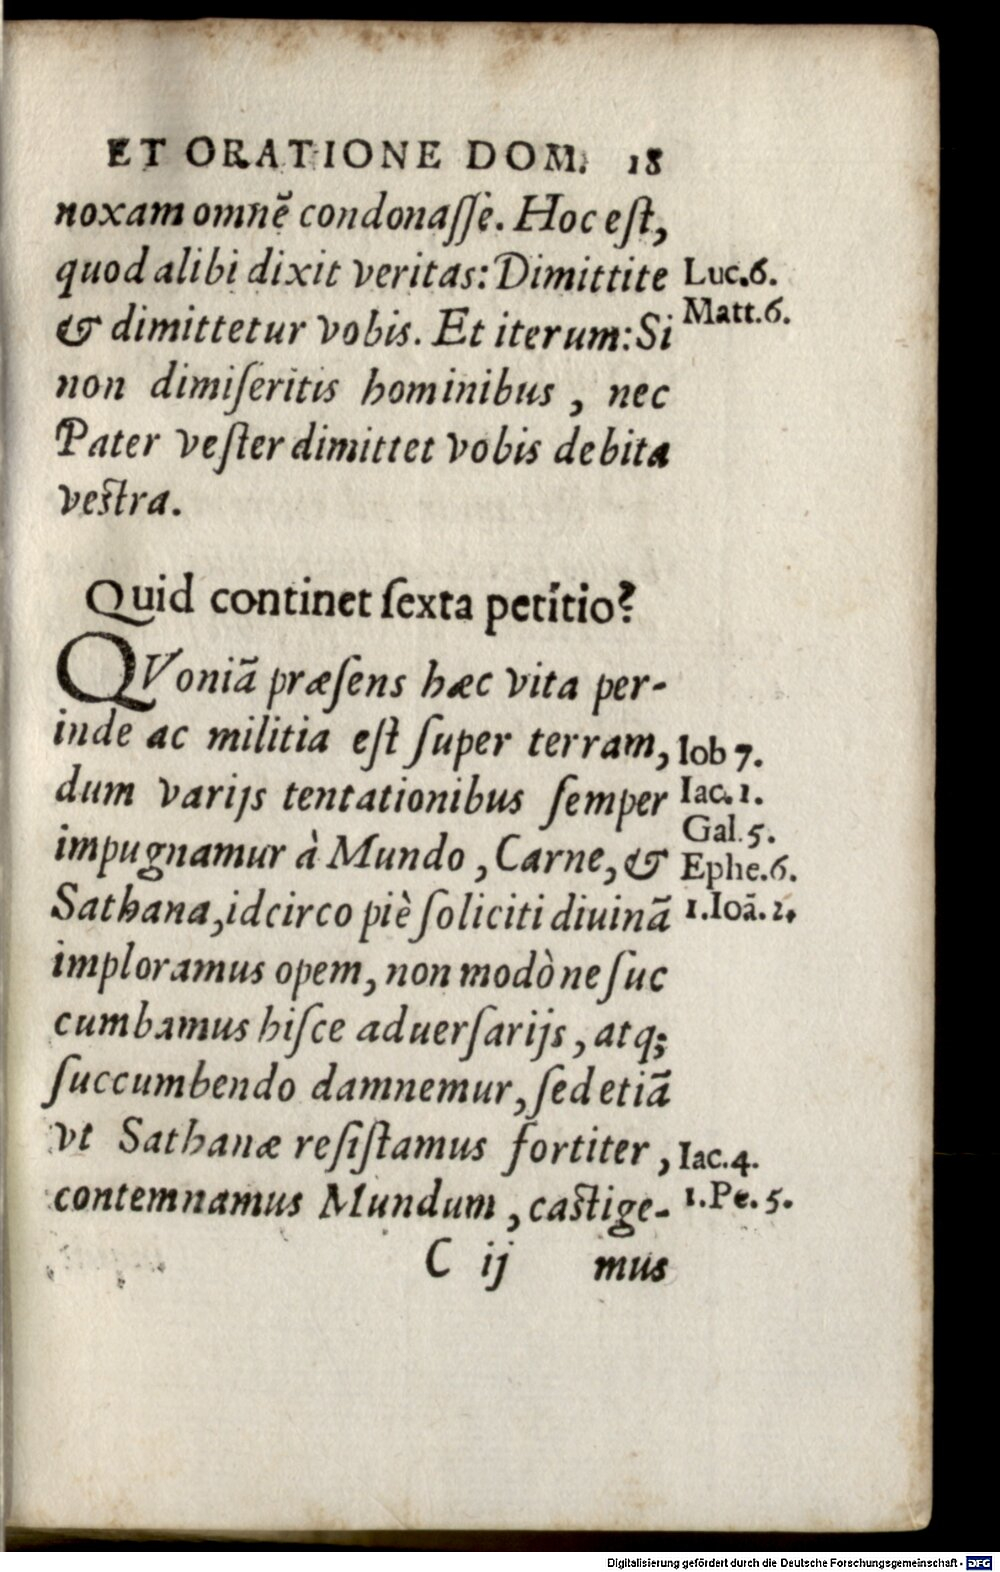 ET ORATIONE DOM. 18
noxam omnē condonaſſe. Hoc eſt,
quod alibi dixit veritas: Dimittite
Luc.6.
& dimittetur vobis. Et iterum: Si
Matt.6.
non dimiſeritis hominibus, nec
Pater veſter dimittet vobis debita
veſtra.
Quid continet ſexta petitio?
QVoniā præſens hæc vita per-
inde ac militia eſt ſuper terram,
Iob 7.
dum varijs tentationibus ſemper
Iac. 1.
Gal. 5.
impugnamur à Mundo, Carne, &
Ephe.6.
Sathana, idcirco piè ſoliciti diuinā
1.Ioā. 2.
imploramus opem, non modò ne ſuc
cumbamus hiſce aduerſarijs, atq;
ſuccumbendo damnemur, ſed etiā
vt Sathanæ reſiſtamus fortiter,
Iac.4.
contemnamus Mundum, caſtige-
1.Pe. 5.
C ij mus
Digitalisierung gefördert durch die Deutsche Forschungsgemeinschaft - DFG